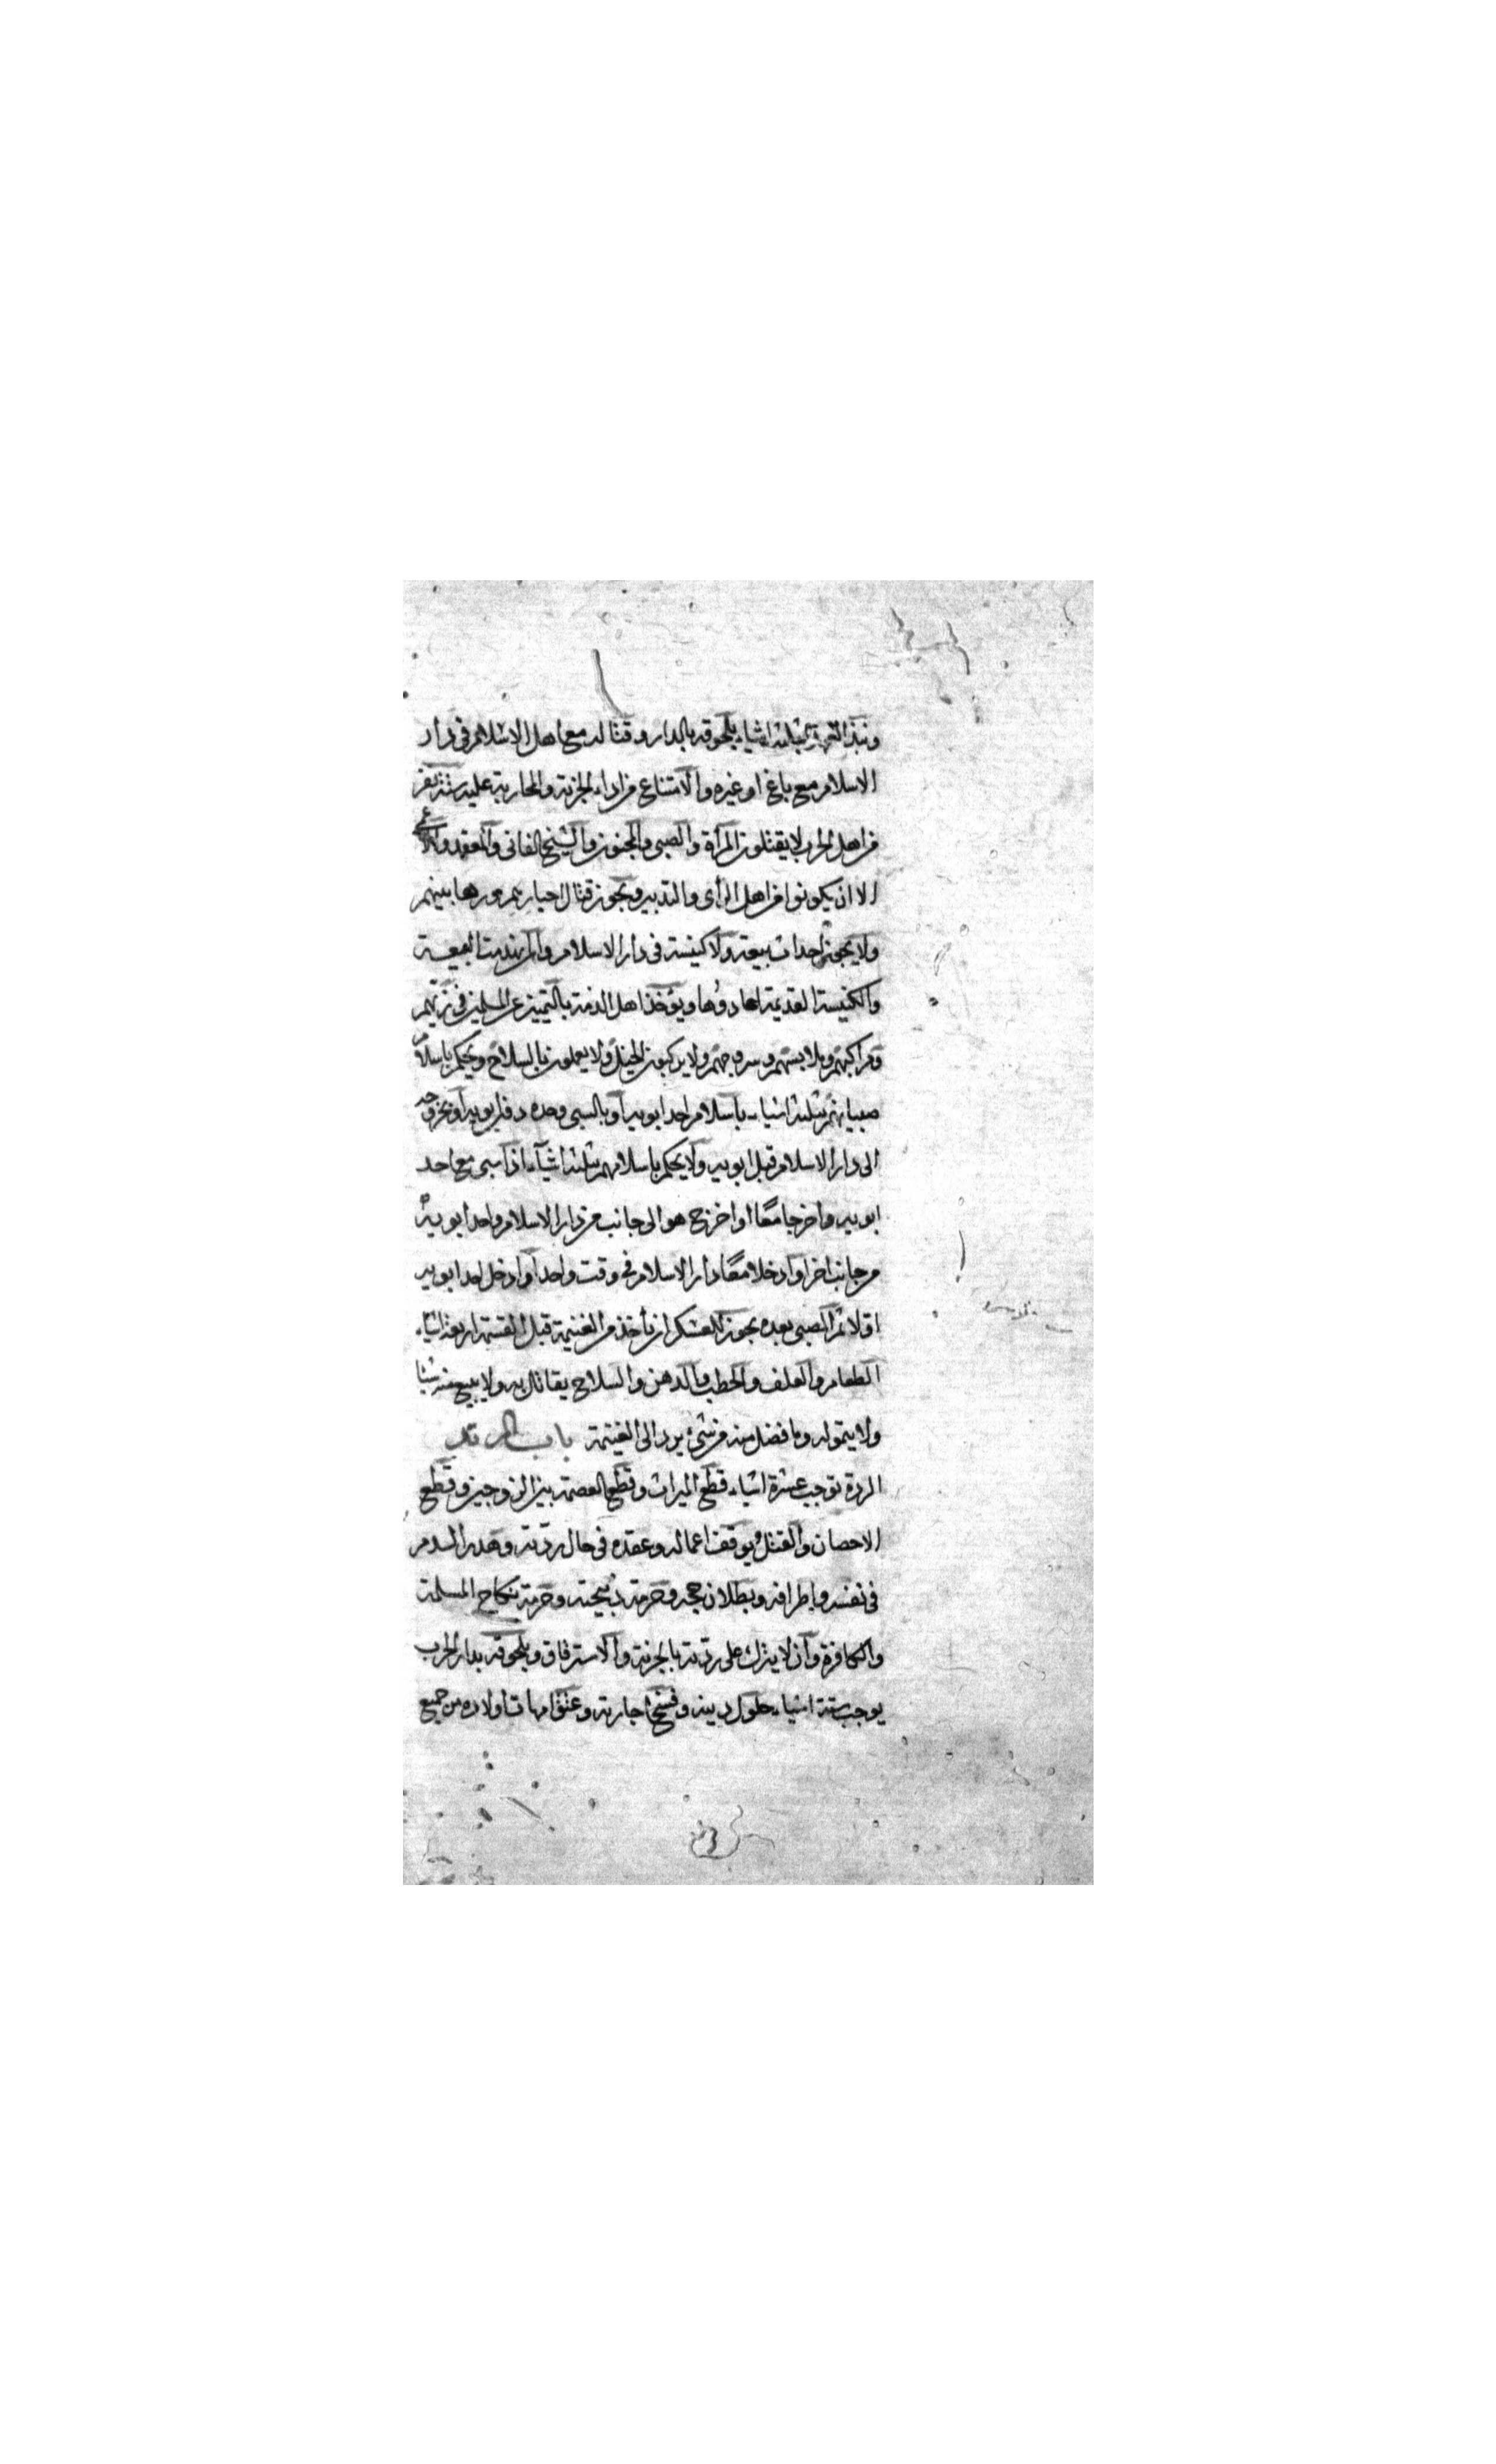 ونبذ العهد بثلثة اشياء بلحوقه بالدار وقتاله مع اهل الاسلام في دار
الاسلام مع باغ او غيره والامتناع من اداء الجزية والمحاربة عليه ستة نفر
من اهل الحرب لا يقتلون المرأة والصبى والمجنون والشيخ الفانى والمقعد والاعمى
الا ان يكونوا من اهل الرأى والتدبير ويجوز قتال
ولا يجوز احداث بيعة ولا كنيسة في دار الاسلام وان انهدمت البيعة
والكنيسة القديمة اعادوها ويؤخذ اهل الذمة بالتمييز عن المسلمين في زيهم
ومراكبهم وملابسهم وسروجهم ولا يركبون الخيل ولا يعملون بالسلاح ويحكم باسلام
صبيانهم بثلثة اشياء باسلام احد ابويه او بالسبى وحده دون ابويه او بخروجه
الى دار الاسلام قبل ابويه ولا يحكم باسلامهم بثلثة اشياء اذا سبى مع احد
ابويه واخرجا معًا او اخرج هو الى جانب من دار الاسلام واحد ابويه
من جانب اخر او ادخلا معًا دار الاسلام في وقت واحد او ادخل احد ابويه
اولا ثم الصبى بعده يجوز للعسكر ان يأخذ من الغنيمة قبل القسمة اربعة اشياء
الطعام والعلف والحطب والدهن والسلاح يقاتل به ولا يبيع منه شيئا
ولا يتموله وما فضل منه من شئ يرد الى الغنيمة باب المرتد
الردة توجب عشرة اشياء قطع الميراث وقطع العصمة بين الزوجين وقطع
الاحصان والقتل ويوقف اعماله وعقده في حال ردته وهدر الدم
في نفسه واطرافه وبطلان حجه وحرمة ذبيحته وحرمة نكاح المسلمة
والكافرة وان لا يترك على ردته بالجزية والاسترقاق وبلحوقه بدار الحرب
يوجب ستة اشياء حلول دينه وفسخ اجارته وعتق امهات اولاده من جميع